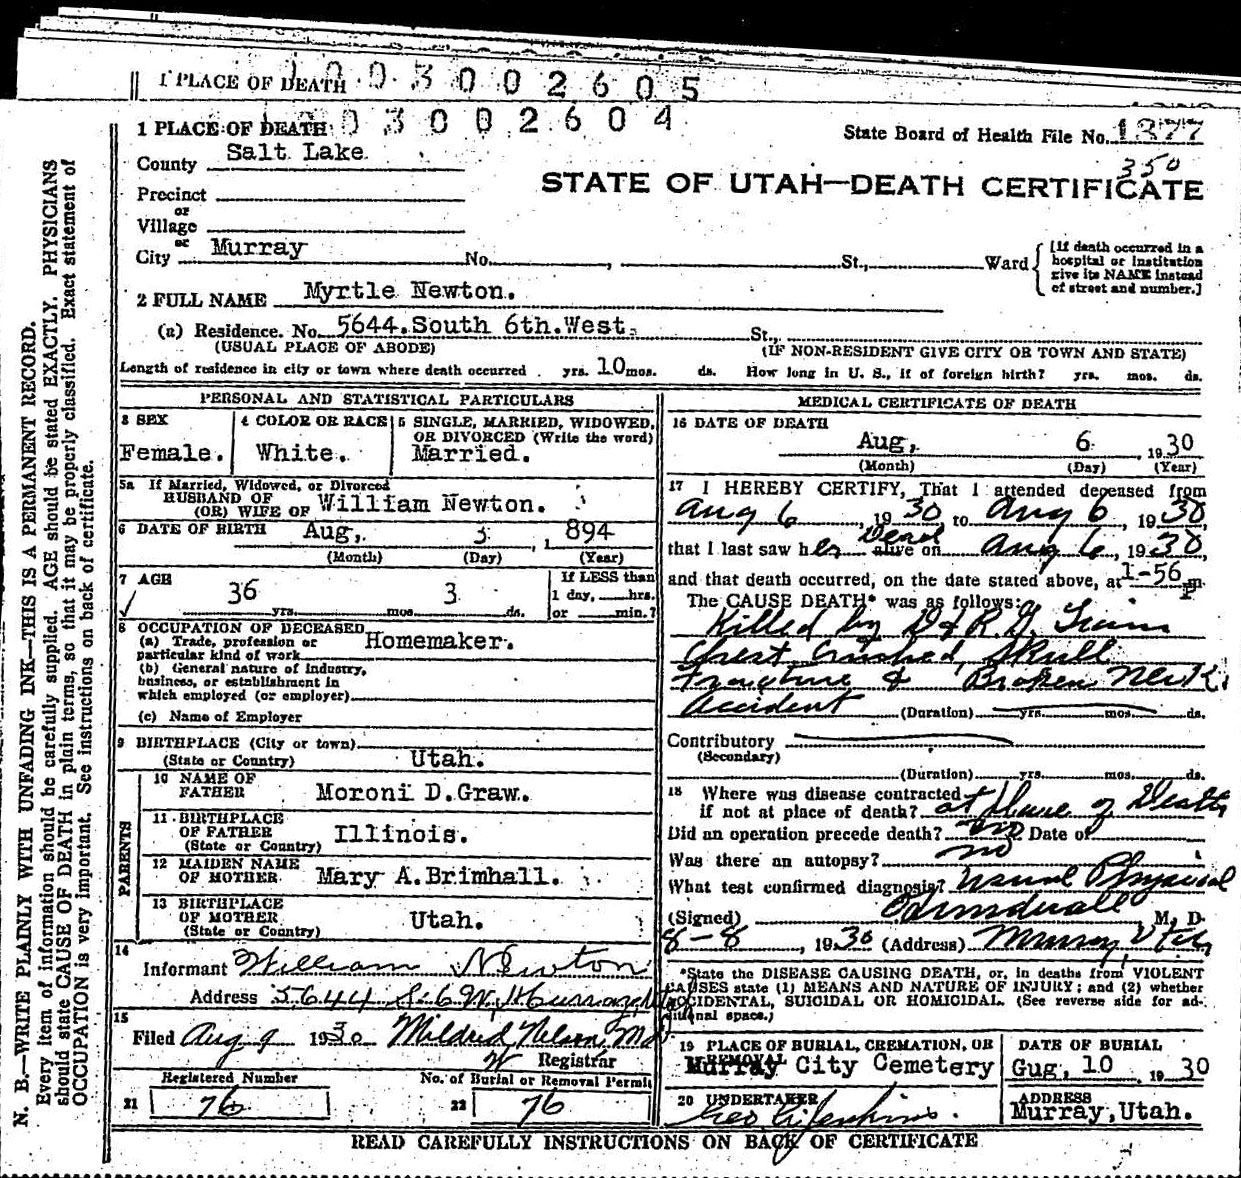 1 PLACE OF DEATH 1003002605
1 PLACE OF DEATH 1003002604
State Board of Health File No. 1377
County Salt Lake
350
STATE OF UTAH—DEATH CERTIFICATE
Precinct
or
Village
or
City Murray No. , St., Ward
[If death occurred in a
hospital or institution
give its NAME instead
of street and number.]
2 FULL NAME Myrtle Newton.
(a) Residence. No. 5644. South 6th. West. St.,
(USUAL PLACE OF ABODE) (IF NON-RESIDENT GIVE CITY OR TOWN AND STATE)
Length of residence in city or town where death occurred . yrs. 10 mos. ds. How long in U. S., if of foreign birth? yrs. mos. ds.
PERSONAL AND STATISTICAL PARTICULARS
3 SEX
Female.
4 COLOR OR RACE
White.
5 SINGLE, MARRIED, WIDOWED,
OR DIVORCED (Write the word)
Married.
5a If Married, Widowed, or Divorced
HUSBAND OF
(OR) WIFE OF William Newton.
6 DATE OF BIRTH Aug, 3 , 1894
(Month) (Day) (Year)
7 AGE
36 yrs. mos. 3 ds.
If LESS than
1 day, hrs.
or min.?
8 OCCUPATION OF DECEASED
(a) Trade, profession or
particular kind of work Homemaker.
(b) General nature of Industry,
business, or establishment in
which employed (or employer)
(c) Name of Employer
9 BIRTHPLACE (City or town)
(State or Country) Utah.
PARENTS
10 NAME OF
FATHER Moroni D.Graw.
11 BIRTHPLACE
OF FATHER Illinois.
(State or Country)
12 MAIDEN NAME
OF MOTHER Mary A.Brimhall.
13 BIRTHPLACE
OF MOTHER Utah.
(State or Country)
14
Informant William Newton
Address 5644 S. 6 W, Murray,
15
Filed Aug 9 1930 Mildred Nelson, Md
Registrar
Registered Number
21 76
No. of Burial or Removal Permit
22 76
MEDICAL CERTIFICATE OF DEATH
16 DATE OF DEATH
Aug, 6 , 1930
(Month) (Day) (Year)
17 I HEREBY CERTIFY, That I attended deceased from
Aug 6 , 1930 to Aug 6 , 1930,
that I last saw her Dead alive on Aug 6, 1930,
and that death occurred, on the date stated above, at 1-56 P m.
The CAUSE DEATH* was as follows:
Killed by D & R.G. Train
Chest Crushed, Skull
Fracture & Broken Neck.
Accident (Duration) yrs. mos. ds.
Contributory
(Secondary)
(Duration) yrs. mos. ds.
18 Where was disease contracted
if not at place of death? at Place of Death
Did an operation precede death? no Date of
Was there an autopsy? no
What test confirmed diagnosis? Usual Physical
(Signed) M. D.
8-8 , 1930 (Address) Murray, Utah
*State the DISEASE CAUSING DEATH, or, in deaths from VIOLENT
CAUSES state (1) MEANS AND NATURE OF INJURY; and (2) whether
ACCIDENTAL, SUICIDAL OR HOMICIDAL. (See reverse side for ad-
ditional space.)
19 PLACE OF BURIAL, CREMATION, OR
REMOVAL
Murray City Cemetery
DATE OF BURIAL
Gug, 10 , 1930
20 UNDERTAKER
Geo Jenkins.
ADDRESS
Murray,Utah.
READ CAREFULLY INSTRUCTIONS ON BACK OF CERTIFICATE
N. B.—WRITE PLAINLY WITH UNFADING INK—THIS IS A PERMANENT RECORD.
Every item of information should be carefully supplied. AGE should be stated EXACTLY. PHYSICIANS
should state CAUSE OF DEATH in plain terms, so that it may be properly classified. Exact statement of
OCCUPATION is very important. See instructions on back of certificate.